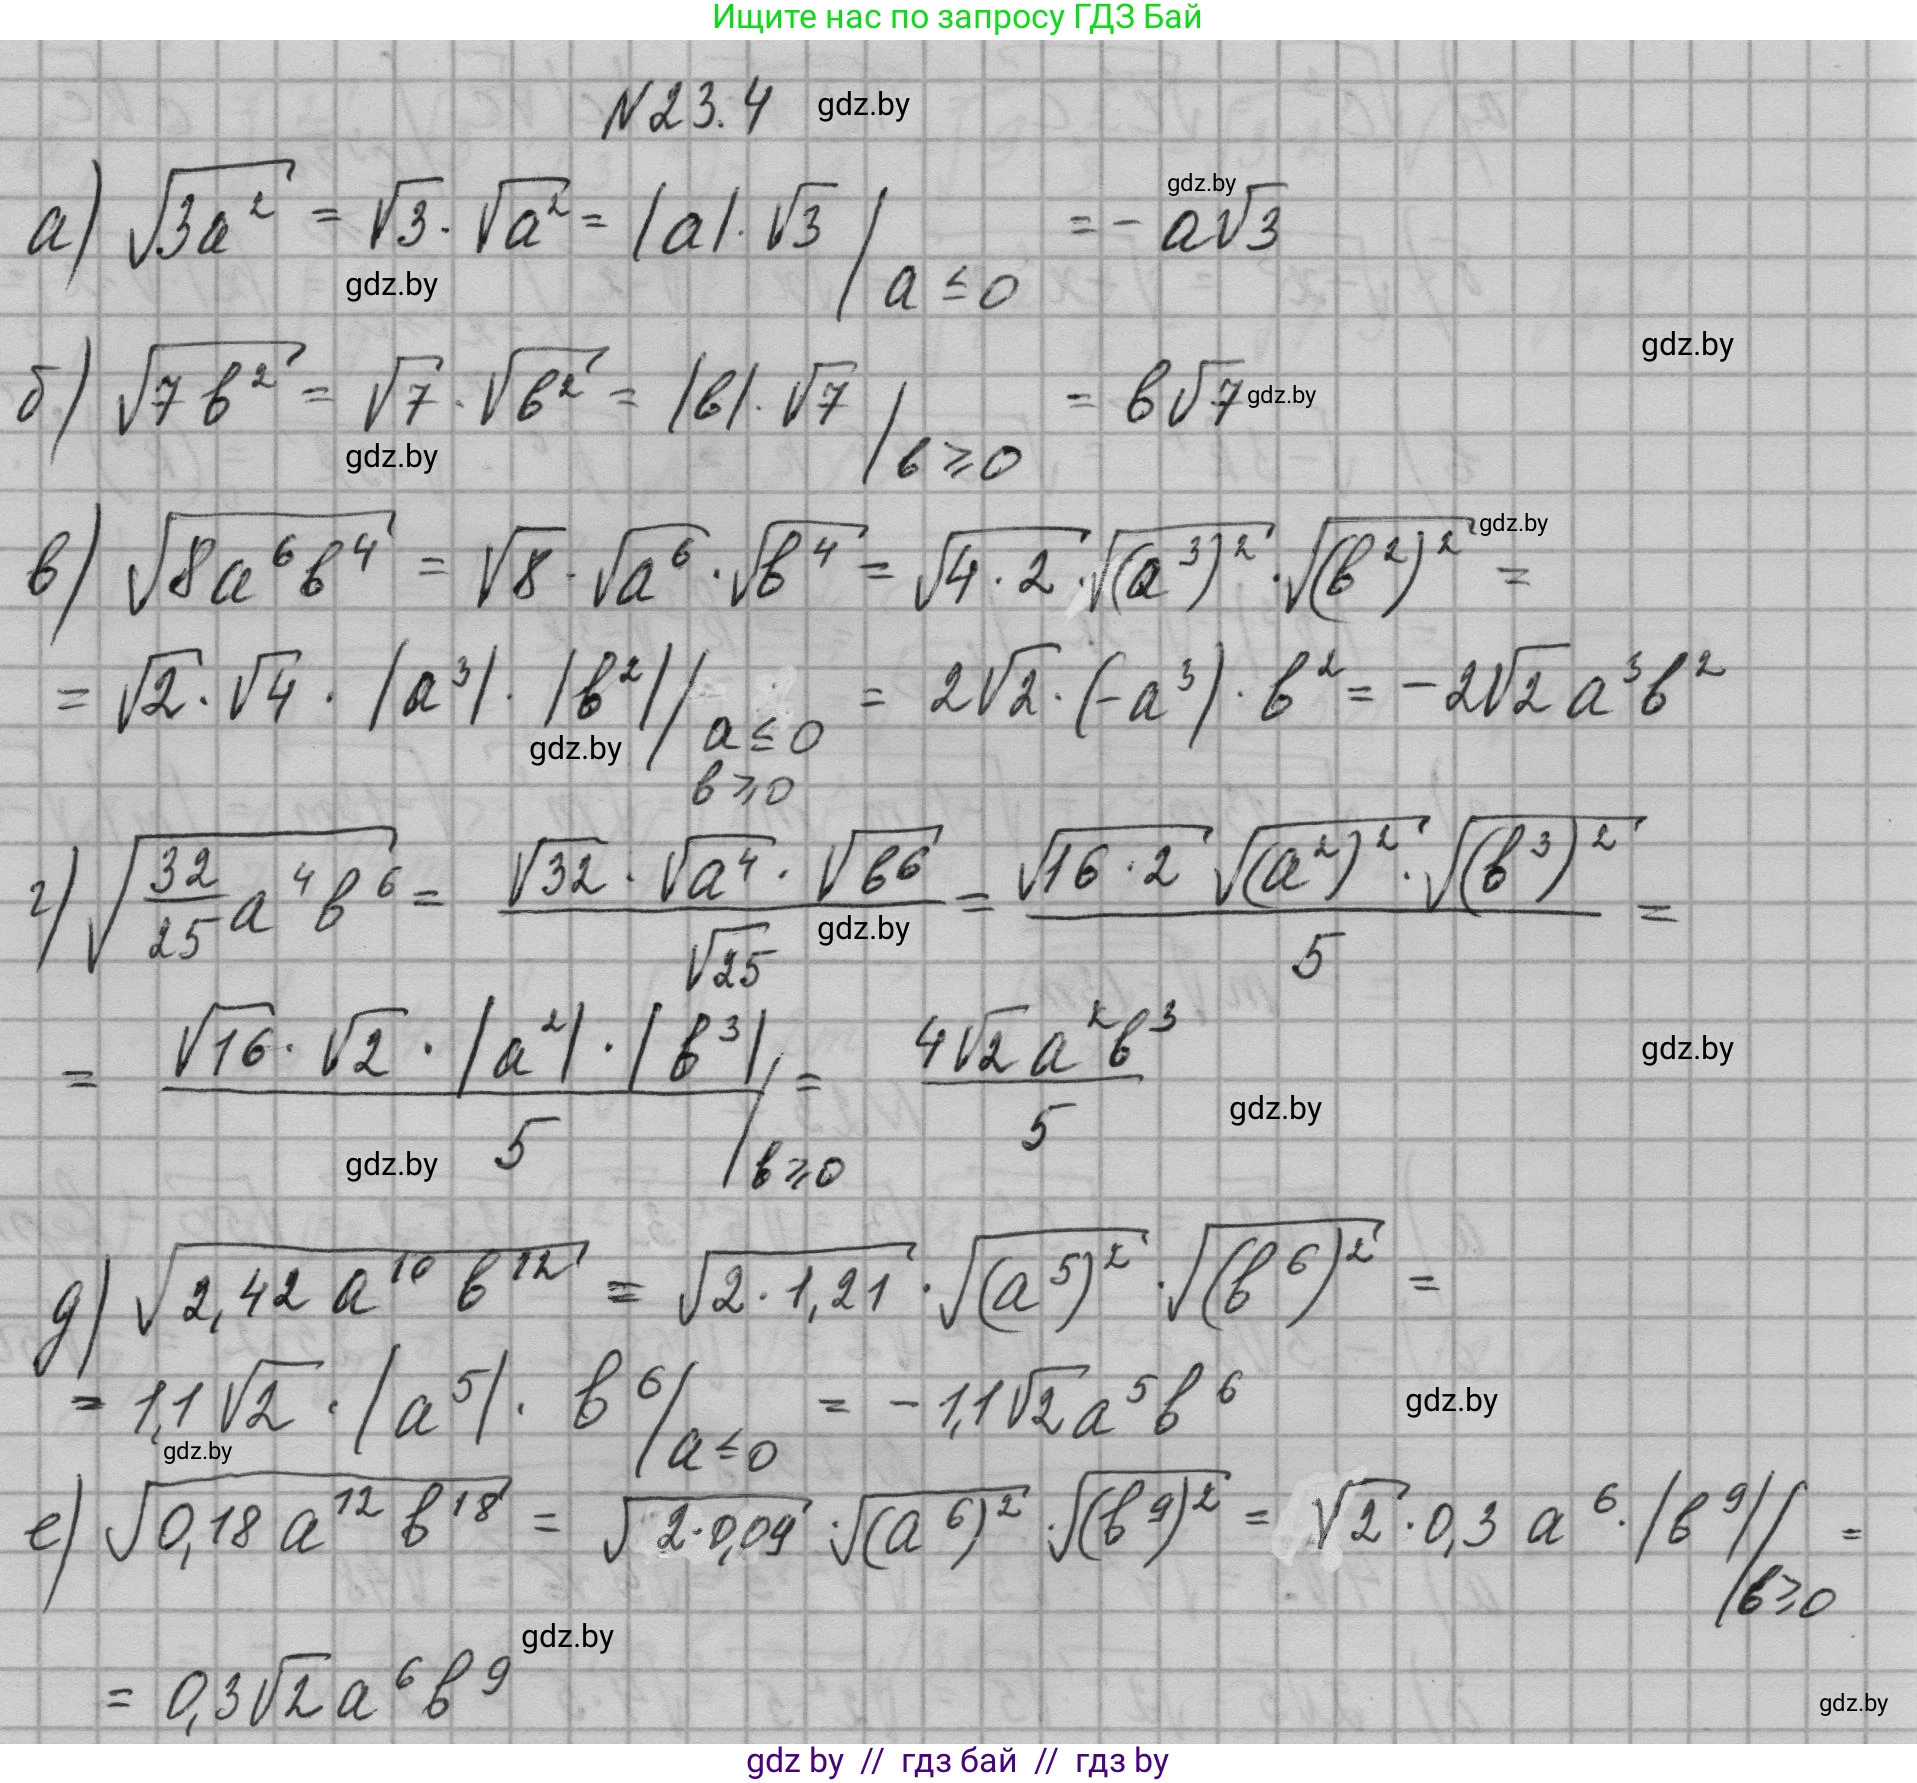 Ищите нас по запросу ГДЗ Бай
N 23.4 gdz.by
а) √(3a²) = √3 · √(a²) = |a| · √3 |a ≤ 0 = - a√3 gdz.by
gdz.by
б) √(7b²) = √7 · √(b²) = |b| · √7 |b ≥ 0 = b√7 gdz.by
gdz.by
gdz.by
в) √(8a⁶b⁴) = √8 · √(a⁶) · √(b⁴) = √(4 · 2) · √((a³)²) · √((b²)²) = gdz.by
= √2 · √4 · |a³| · |b²| |a ≤ 0 b ≥ 0 = 2√2 · (-a³) · b² = - 2√2 a³b²
gdz.by
г) √(32/25 a⁴b⁶) = (√32 · √(a⁴) · √(b⁶))/√25 = (√(16 · 2) √((a²)²) · √((b³)²))/5 =
gdz.by
= (√16 · √2 · |a²| · |b³|)/5 |b ≥ 0 = (4√2 a²b³)/5
gdz.by
gdz.by
gdz.by
д) √(2,42 a¹⁰ b¹²) = √(2 · 1,21) · √((a⁵)²) · √((b⁶)²) =
= 1,1√2 · |a⁵| · b⁶ |a ≤ 0 = - 1,1√2 a⁵b⁶ gdz.by
gdz.by
е) √(0,18 a¹² b¹⁸) = √(2 · 0,09) · √((a⁶)²) · √((b⁹)²) = √2 · 0,3 a⁶ · |b⁹| |b ≥ 0 =
gdz.by
= 0,3√2 a⁶b⁹
gdz.by
gdz by // гдз бай // гдз by